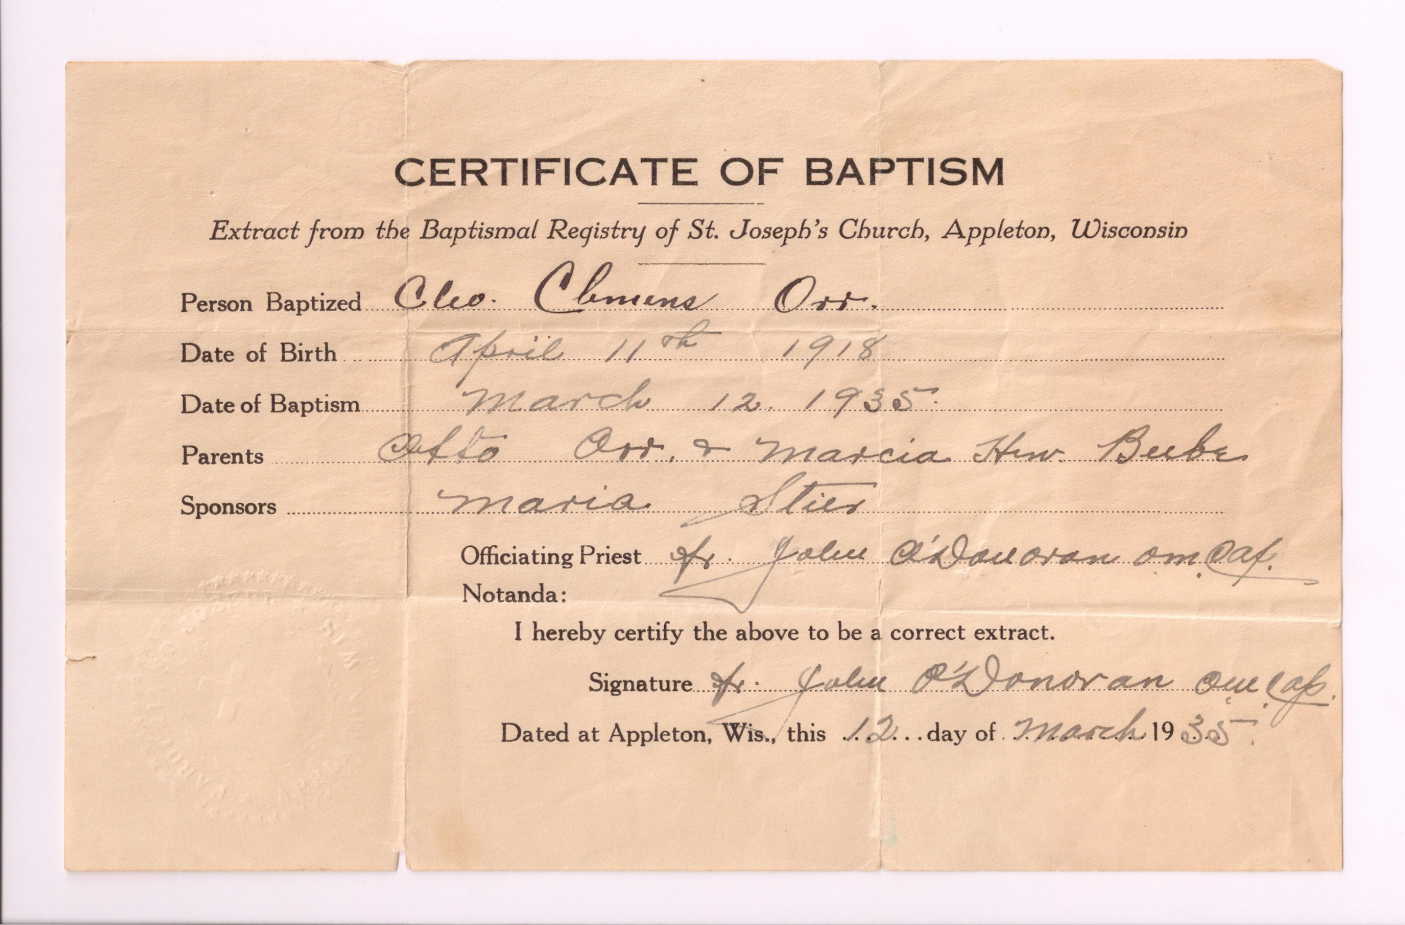 CERTIFICATE OF BAPTISM
Extract from the Baptismal Registry of St. Joseph's Church, Appleton, Wisconsin
Person Baptized Cleo. Clemens Orr.
Date of Birth April 11th 1918
Date of Baptism March 12. 1935.
Parents Otto Orr. & Marcia Beebe
Sponsors Maria Stier
Officiating Priest fr. John O'Donovan o.m.Cap.
Notanda:
I hereby certify the above to be a correct extract.
Signature fr. John O'Donovan o.m.Cap.
Dated at Appleton, Wis., this 12 day of March 1935.